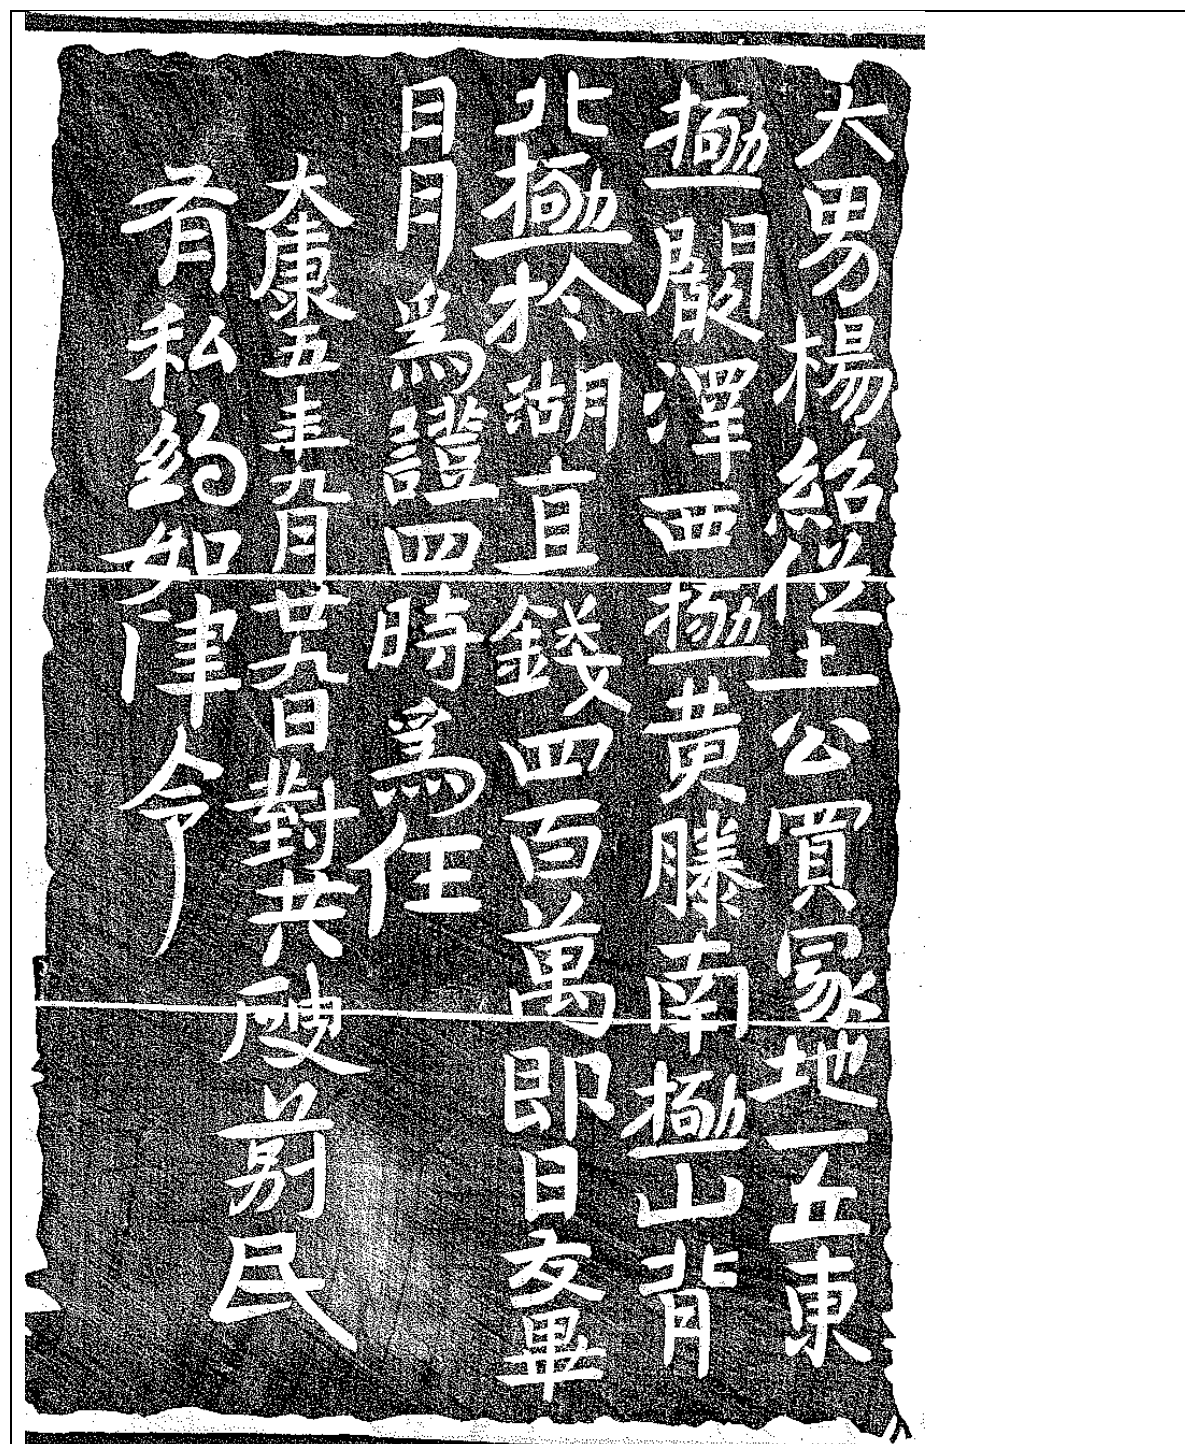 大男楊紹從土公買冢地一丘東
極闞澤西極黃滕南極山背
北極於湖直錢四百萬即日交畢
日月爲證四時爲任
大康五年九月廿九日對共破莂民
有私約如律令